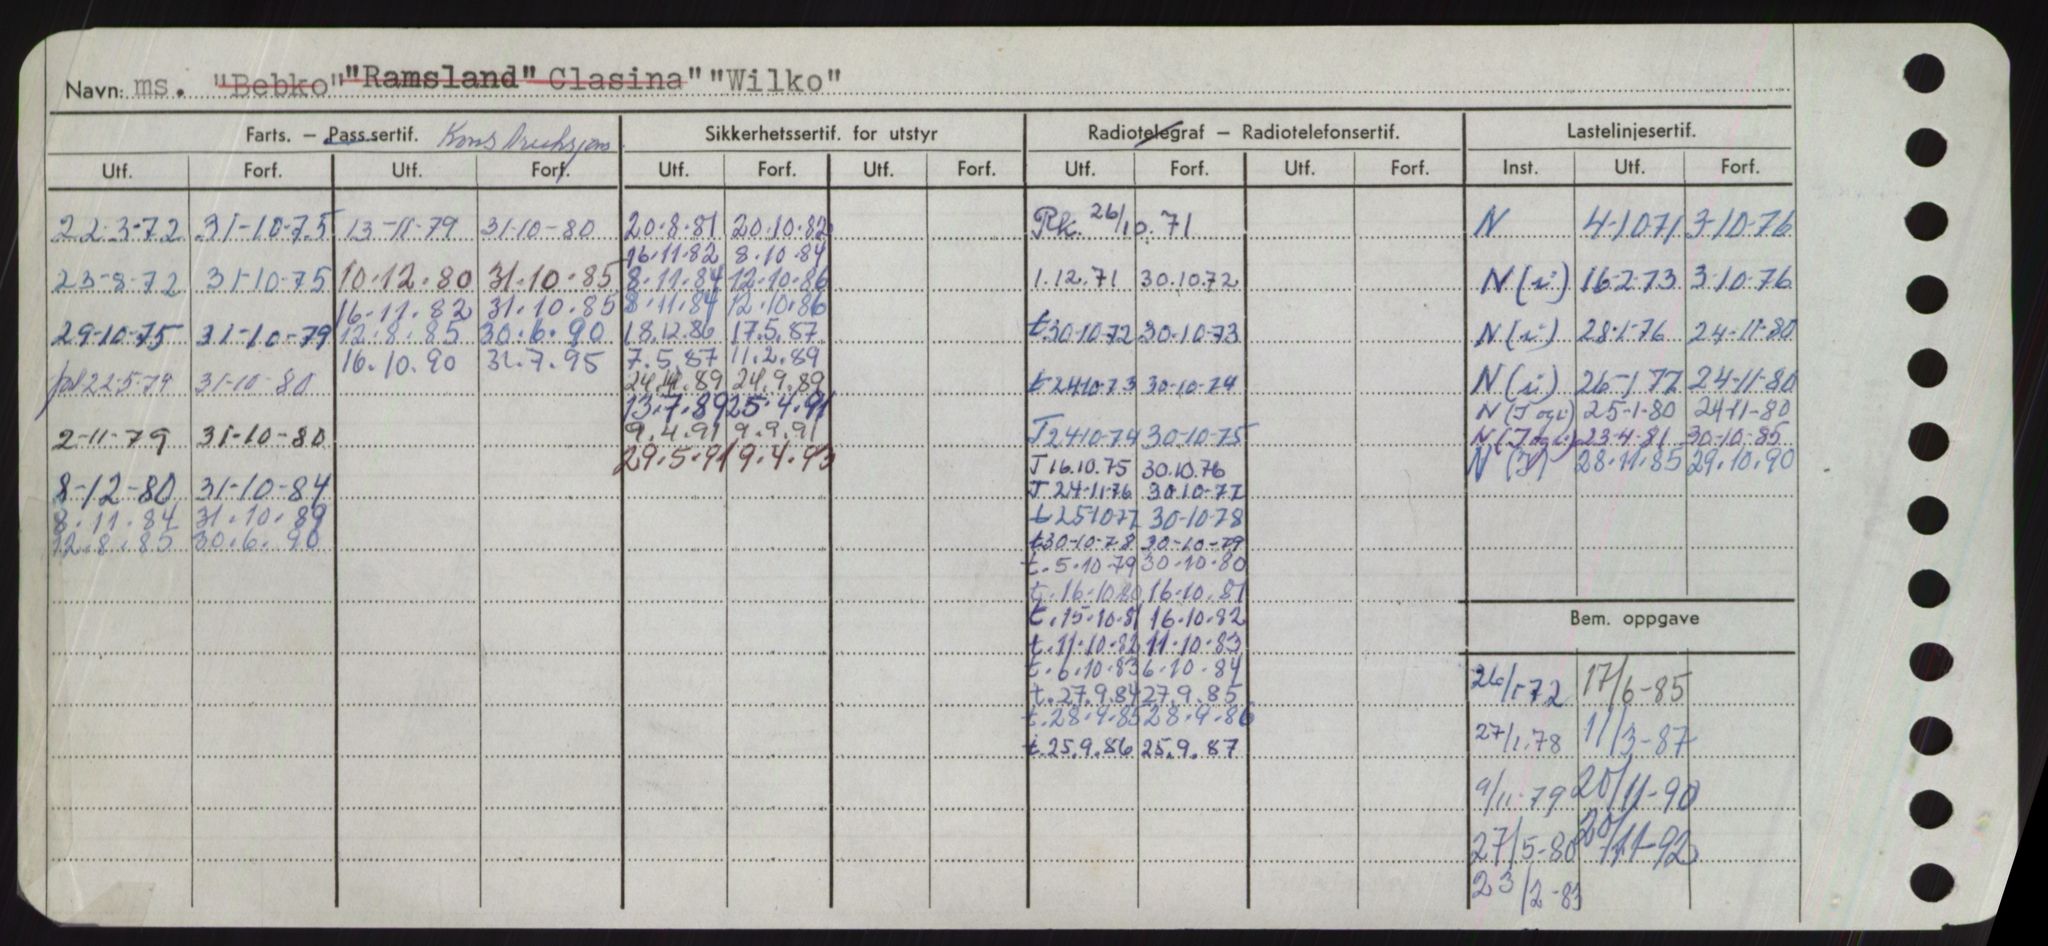 Navn: ms. "Bebko" "Ramsland" Clasina" "Wilko"
Farts. – Pass.sertif. Sikkerhetssertif. for utstyr Radiotelegraf – Radiotelefonsertif. Lastelinjesertif.
Utf. Forf. Utf. Forf. Utf. Forf. Utf. Forf. Utf. Forf. Utf. Forf. Inst. Utf. Forf.
22-3-72 31-10-75 13-11-79 31-10-80 20.8.81 20.10.82 Rk. 26/10.71 N 4-10-71 3-10-76
16.11.82 8.10.84
23-8-72 31-10-75 10.12.80 31.10.85 8.11.84 12.10.86 1.12.71 30.10.72 N (i) 16-2-73 3-10-76
16.11.82 31.10.85 8.11.84 12.10.86
29-10-75 31-10-79 12.8.85 30.6.90 18.12.86 17.5.87 t 30-10-72 30-10-73 N (i) 28-1-76 24-11-80
16.10.90 31.7.95 7.5.87 11.2.89
22-5-79 31-10-80 24.9.89 t 24-10-73 30-10-74 N (i) 26-1-77 24-11-80
13.7.89 25.4.91 N (J og i) 25-1-80 24-11-80
2-11-79 31-10-80 9.4.91 9.9.91 J 24-10-74 30-10-75 N (J og i) 23-4-81 30-10-85
29.5.91 9.4.93 J 16.10.75 30.10.76 N (J) 28.11.85 29.10.90
8-12-80 31-10-84 J 24-11-76 30-10-77
8.11.84 31.10.89 t 25-10-77 30-10-78
12.8.85 30.6.90 t 30-10-78 30-10-79
t. 5-10-79 30-10-80
t. 16-10-80 16-10.81
t. 15-10-81 16-10-82
t. 11-10-82 11-10-83
t. 6.10-83 6-10-84
t. 27.9.84 27.9.85
t. 28.9.85 28.9.86
t. 25.9.86 25.9.87
Bem. oppgave
26/1-72 17/6-85
27/1.78 11/3-87
9/11-79 20/11-90
27/5-80 20/11-92
23/2-83